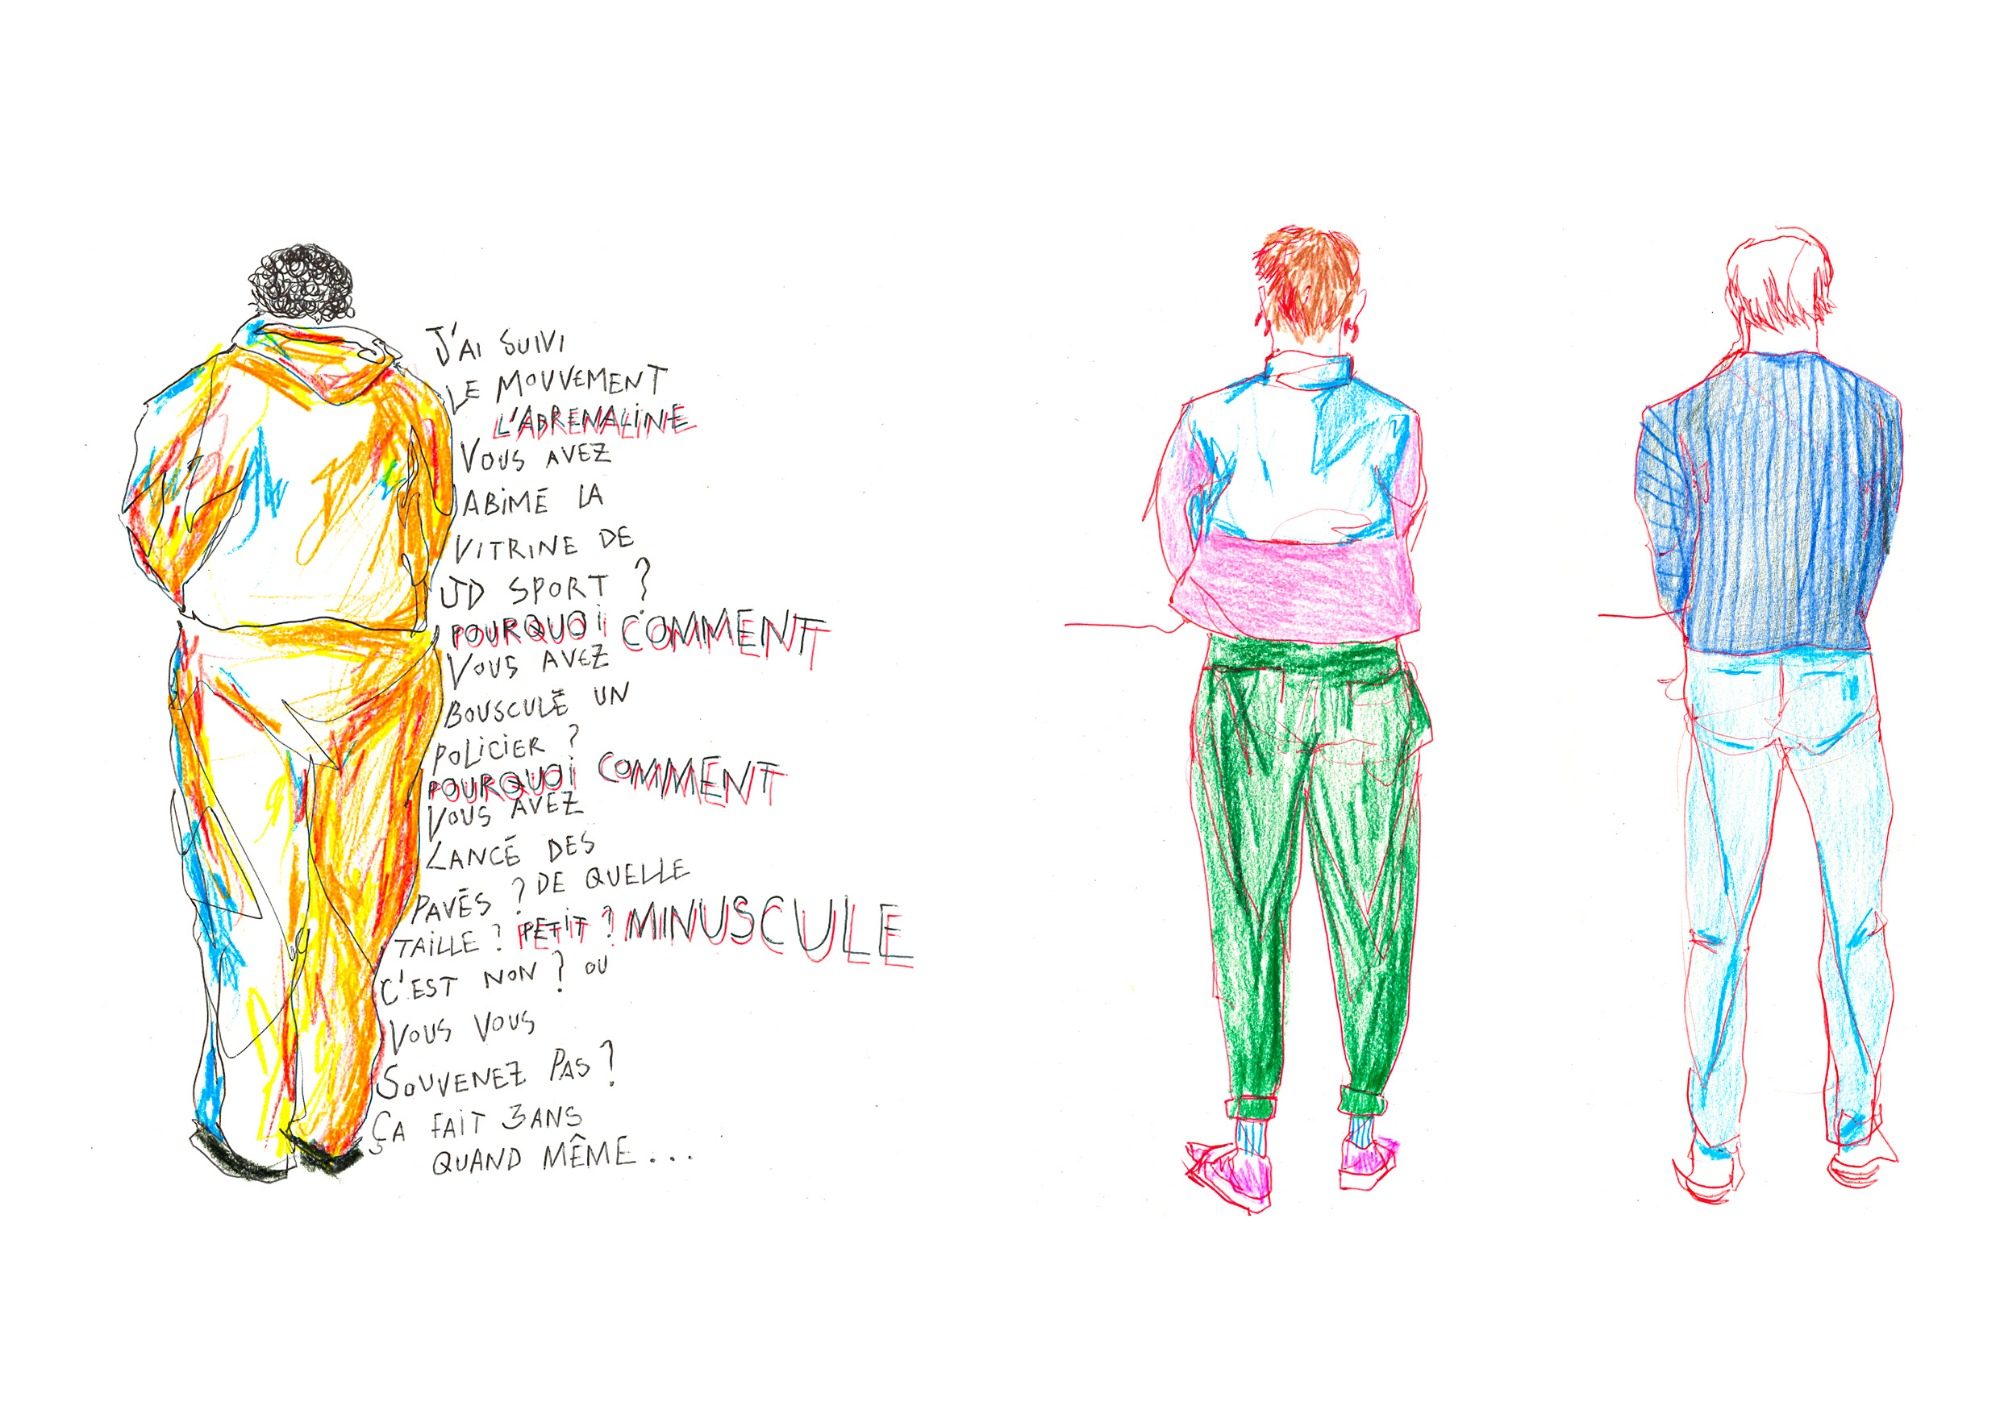 J'AI SUIVI
LE MOUVEMENT
L'ADRENALINE
VOUS AVEZ
ABIMÉ LA
VITRINE DE
JD SPORT ?
POURQUOI COMMENT
VOUS AVEZ
BOUSCULÉ UN
POLICIER ?
POURQUOI COMMENT
VOUS AVEZ
LANCÉ DES
PAVÉS ? DE QUELLE
TAILLE ? PETIT ? MINUSCULE
C'EST NON ? OU
VOUS VOUS
SOUVENEZ PAS ?
ÇA FAIT 3 ANS
QUAND MÊME...